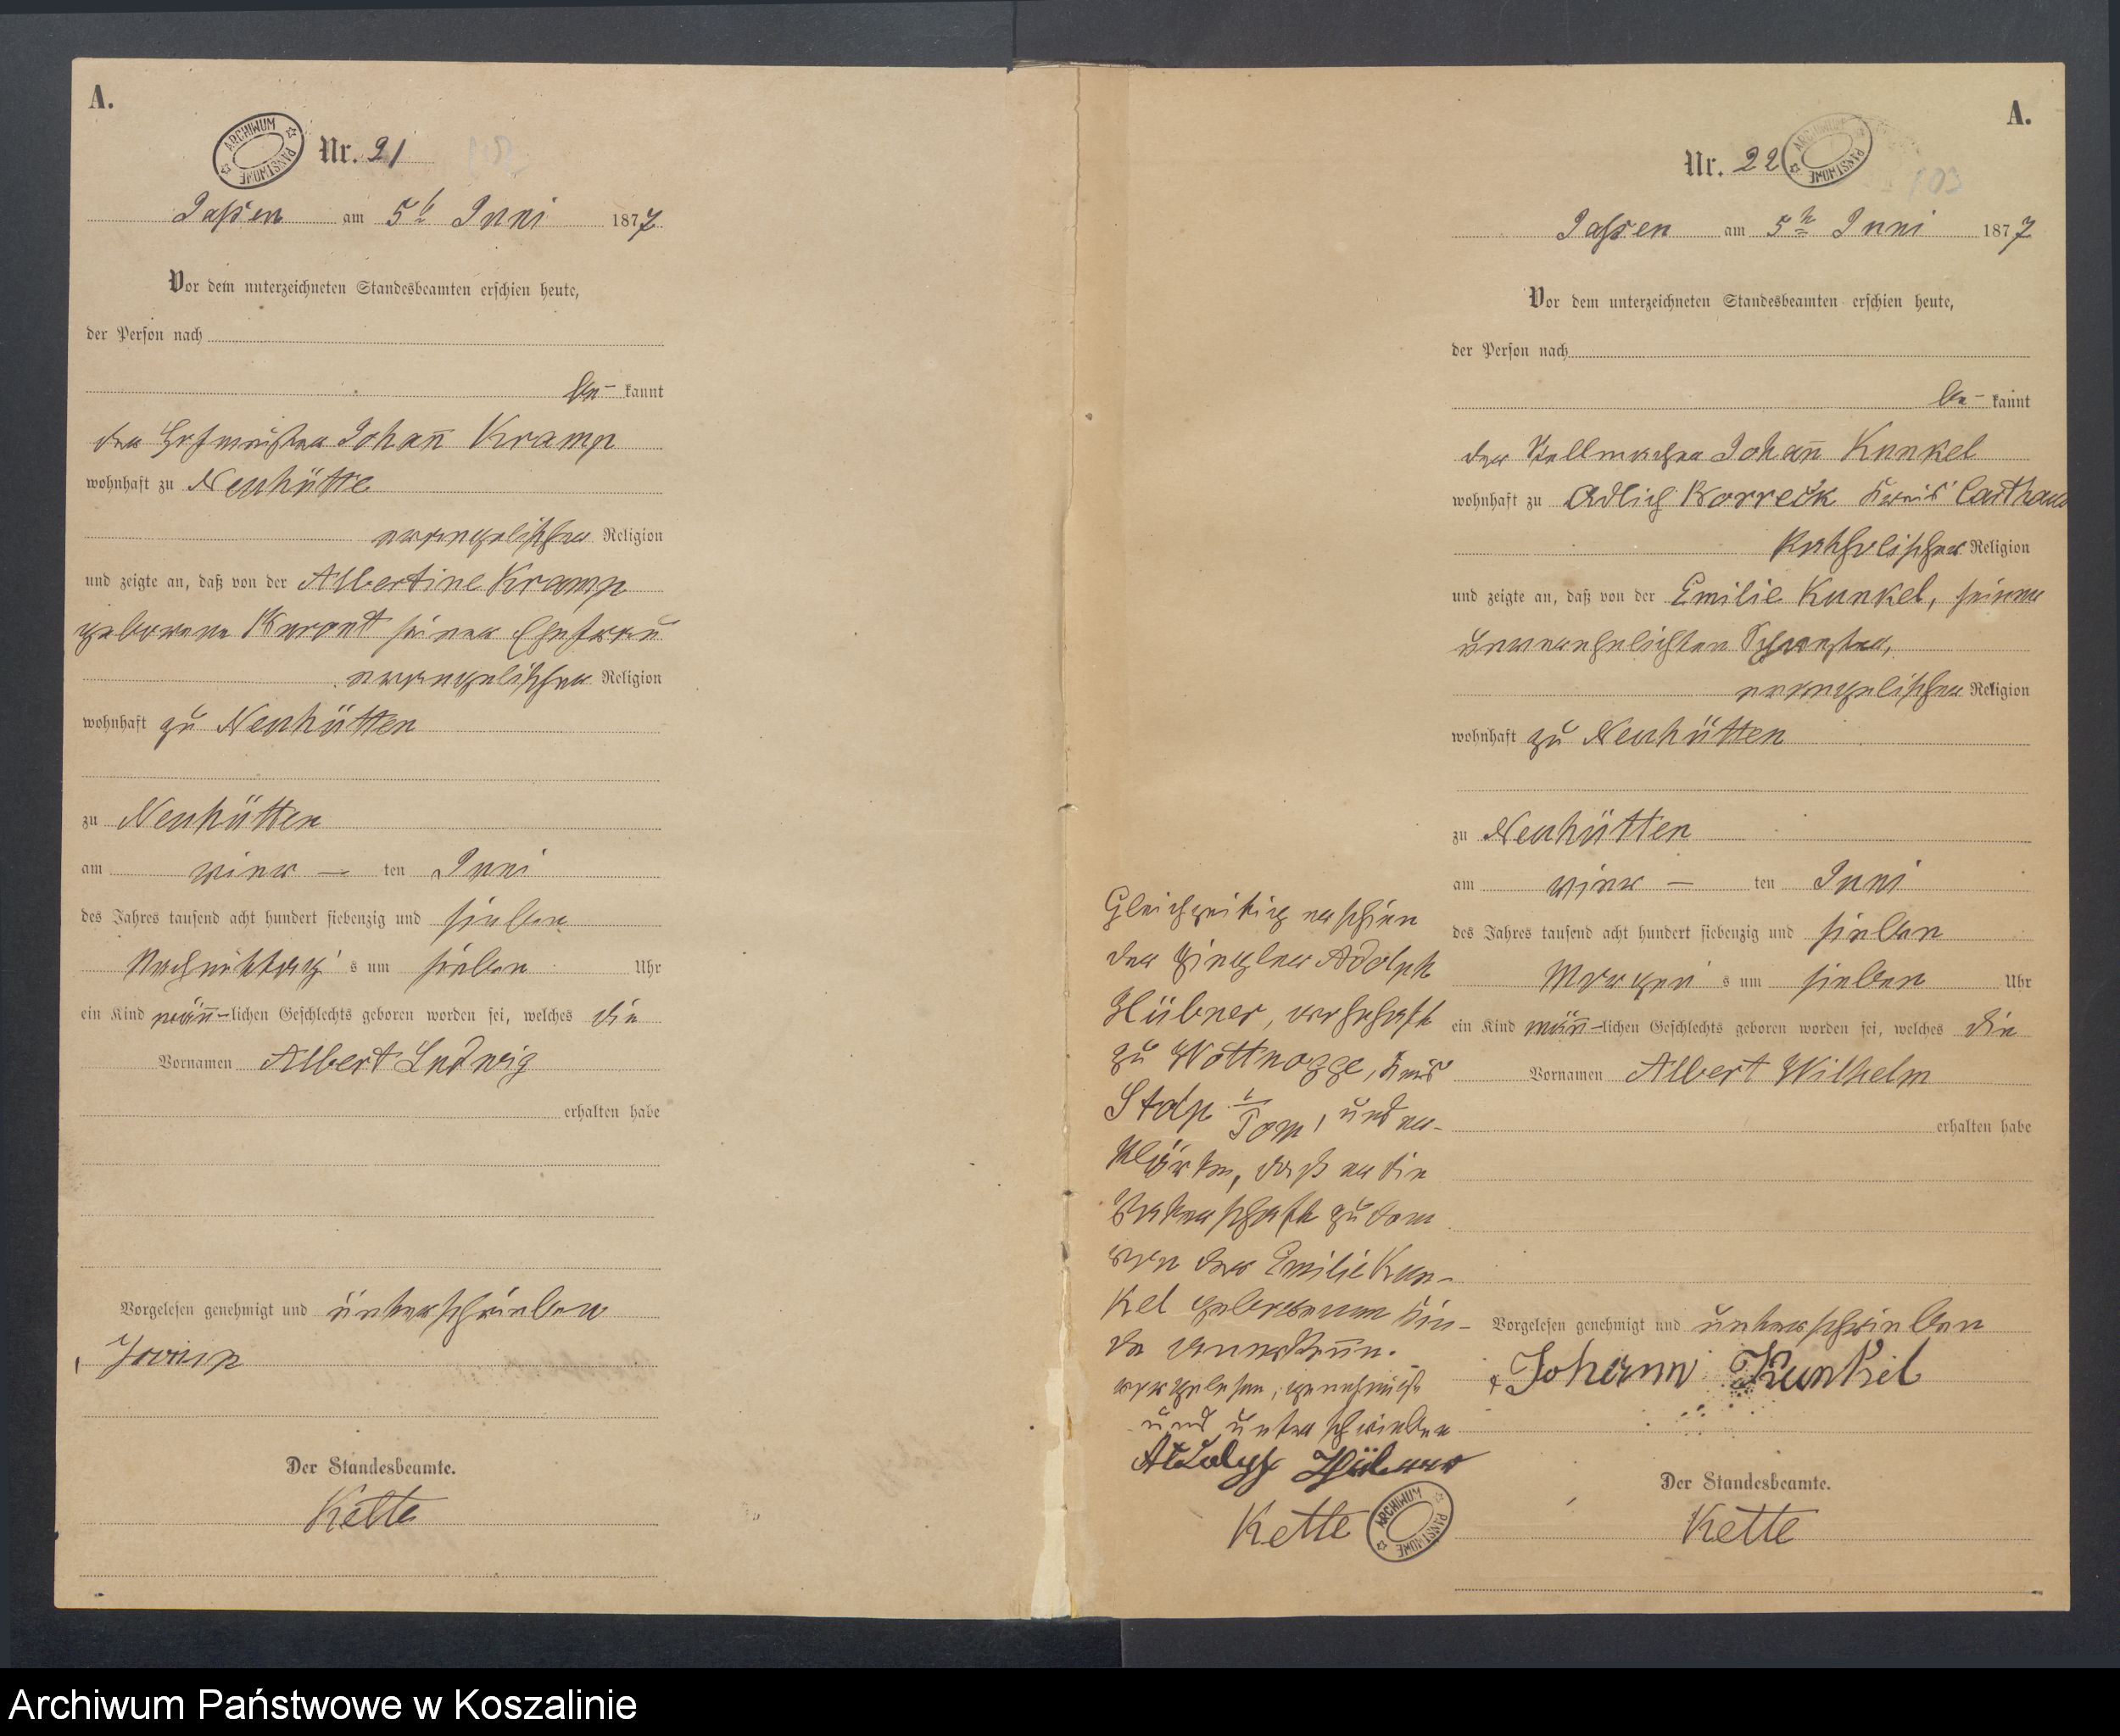 A.
ARCHIWUM PAŃSTWOWE
Nr. 21
Jassen am 5t Juni 1877
Vor dem unterzeichneten Standesbeamten erschien heute,
der Person nach
be- kannt
der Hofmeister Johann̄ Kramp
wohnhaft zu Neuhütte
evangelischer Religion
und zeigte an, daß von der Albertine Kramp
geborene seiner Ehefrau
evangelischer Religion
wohnhaft zu Neuhütten
zu Neuhütten
am vier — ten Juni
des Jahres tausend acht hundert siebenzig und sieben
Nachmittag's um sieben Uhr
ein Kind män̄-lichen Geschlechts geboren worden sei, welches die
Vornamen Albert Ludwig
erhalten habe
Vorgelesen genehmigt und unterschrieben
Der Standesbeamte.
Kette
A.
Nr. 22
ARCHIWUM PAŃSTWOWE
103
Jassen am 5t Juni 1877
Vor dem unterzeichneten Standesbeamten erschien heute,
der Person nach
be- kannt
der Stellmacher Johan̄ Kunkel
wohnhaft zu Adlich Borreck Kreis Carthaus
katholischer Religion
und zeigte an, daß von der Emilie Kunkel, seiner
unverehelichten Schwester,
evangelischer Religion
wohnhaft zu Neuhütten
zu Neuhütten
am vier — ten Juni
des Jahres tausend acht hundert siebenzig und sieben
Morgen s um sieben Uhr
ein Kind män̄-lichen Geschlechts geboren worden sei, welches die
Vornamen Albert Wilhelm
erhalten habe
Vorgelesen genehmigt und unterschrieben
Johann Kunkel
Der Standesbeamte.
Kette
Gleichzeitig erschien
der Ziegler Adolph
Hübner, wohnhaft
zu Wottnogge, Kreis
Stolp i/Pom, und er-
klärte, daß er die
Vaterschaft zu dem
von der Emilie Kun-
kel geborenen Kin-
de anerken̄e.
vorgelesen, genehmigt
und unterschrieben
Adolph Hübner
Kette
ARCHIWUM PAŃSTWOWE
Archiwum Państwowe w Koszalinie